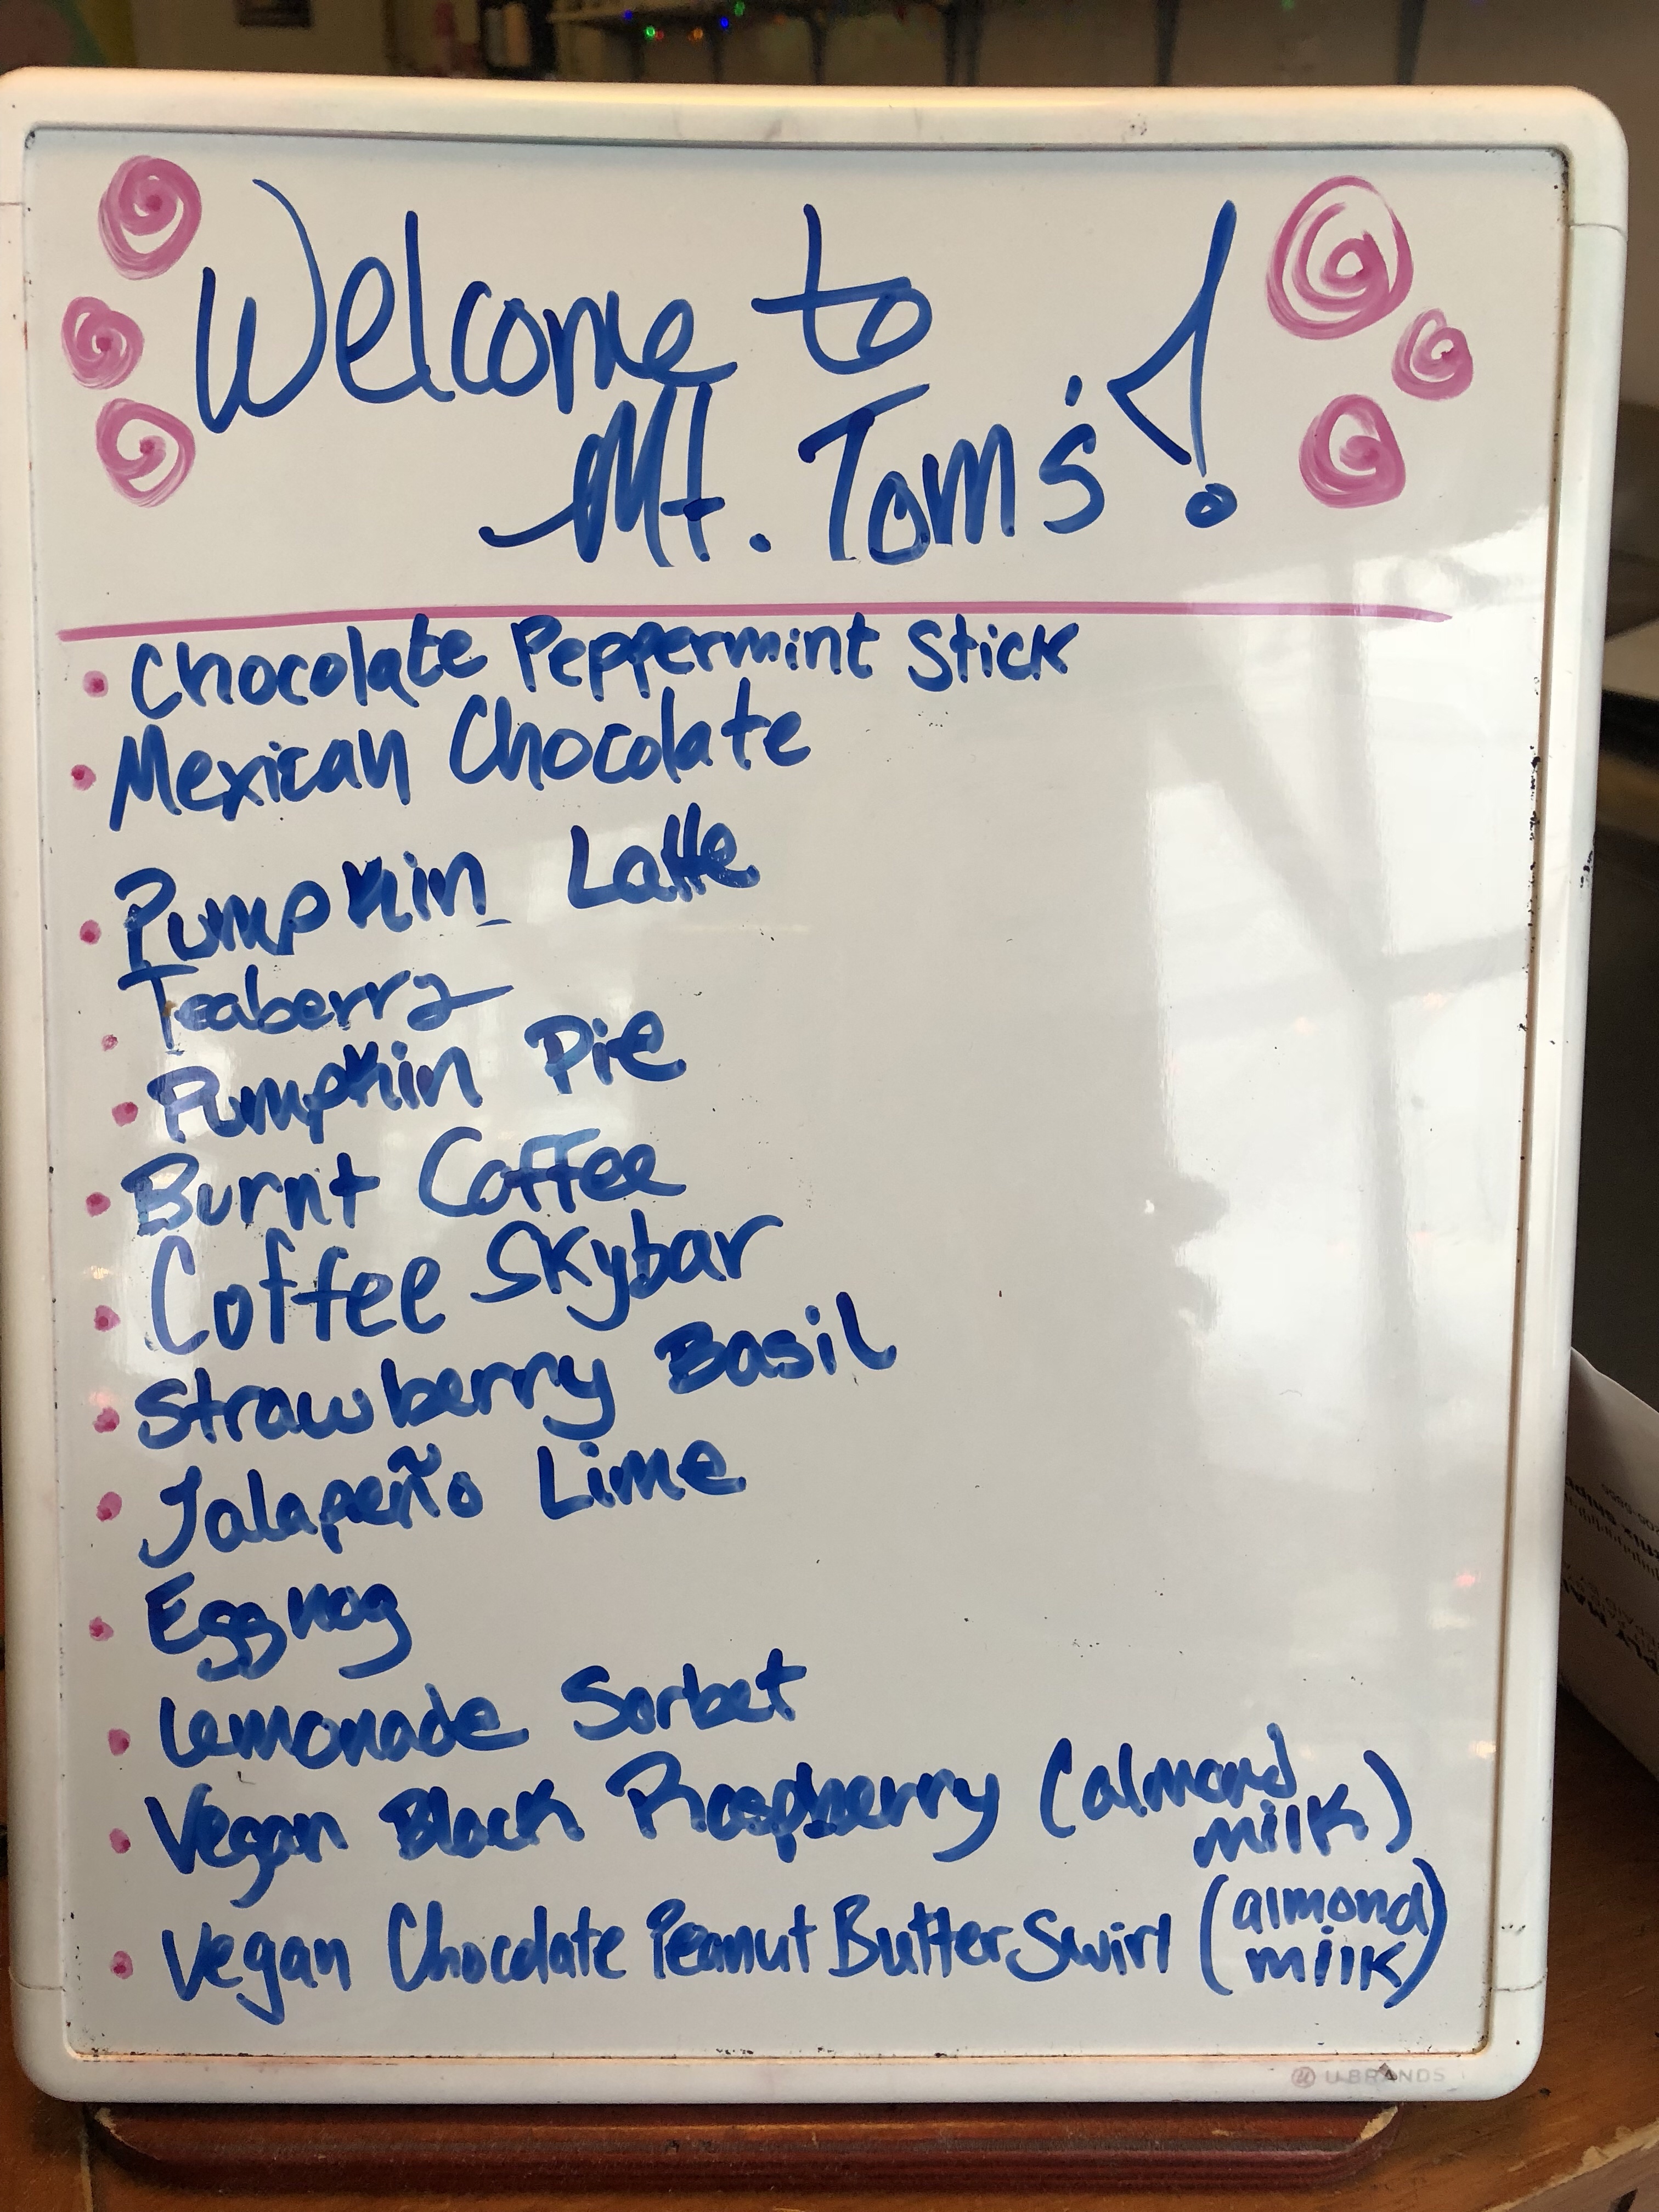 Welcome to
Mt. Tom's!
• Chocolate Peppermint Stick
• Mexican Chocolate
• Pumpkin Latte
• Teaberry
• Pumpkin Pie
• Burnt Coffee
• Coffee Skybar
• Strawberry Basil
• Jalapeño Lime
• Eggnog
• Lemonade Sorbet
• Vegan Black Raspberry (almond
milk)
• Vegan Chocolate Peanut Butter Swirl (almond
milk)
U BRANDS